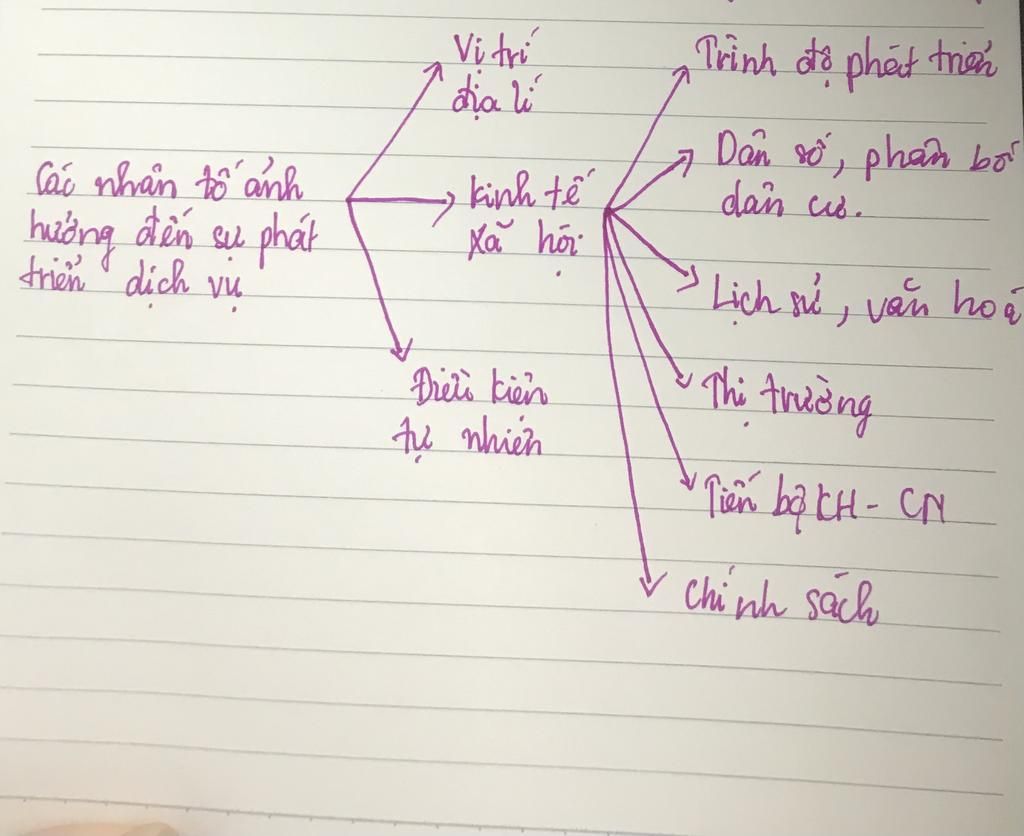 Các nhân tố ảnh
hưởng đến sự phát
triển dịch vụ
Vị trí
địa lí
kinh tế
xã hội
Điều kiện
tự nhiên
Trình độ phát triển
Dân số, phân bố
dân cư.
Lịch sử, văn hoá
Thị trường
Tiến bộ KH - CN
chính sách